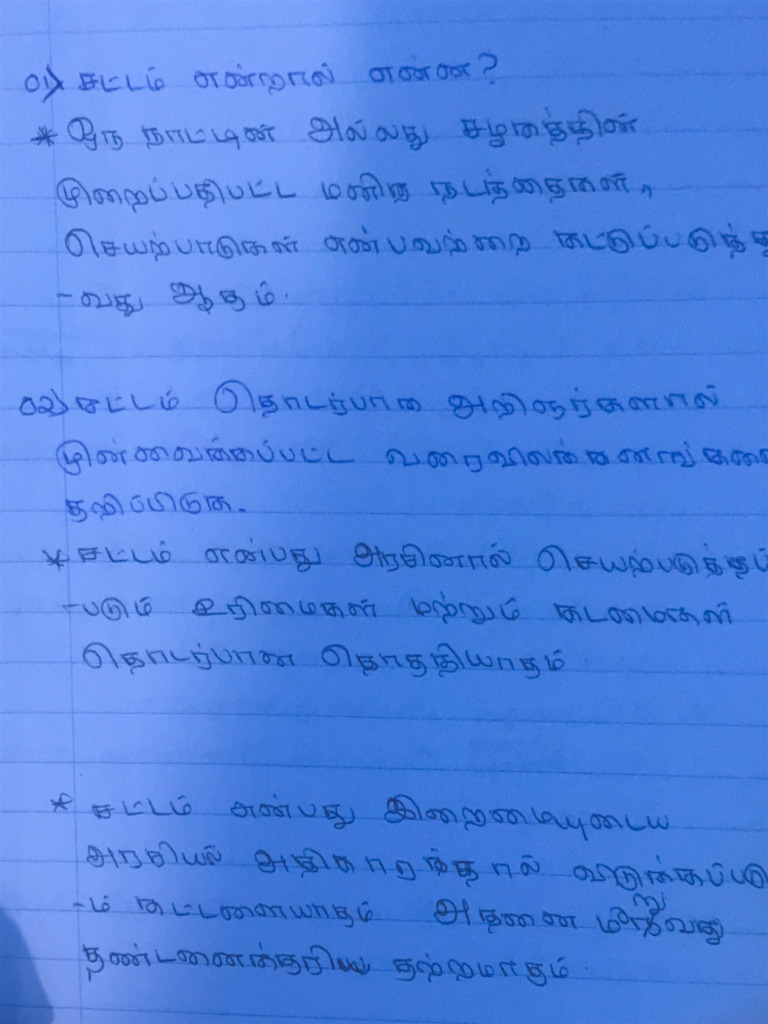 01) சட்டம் என்றால் என்ன?
* ஒரு நாட்டின் அல்லது சமூகத்தின்
முறைப்பதிபட்ட மனித நடத்தைகள்,
செயற்பாடுகள் என்பவற்றை கட்டுப்படுத்து
-வது ஆகும்.
02) சட்டம் தொடர்பாக அறிஞர்களால்
முன்வைக்கப்பட்ட வரைவிலக்கணங்களை
குறிப்பிடுக.
* சட்டம் என்பது அரசினால் செயற்படுத்தப்
-படும் உரிமைகள் மற்றும் கடமைகள்
தொடர்பான தொகுதியாகும்
* சட்டம் என்பது இறைமையுடைய
அரசியல் அதிகாரத்தால் விடுக்கப்படு
-ம் கட்டளையாகும் அதனை மீறுவது
தண்டனைக்குரிய குற்றமாகும்.